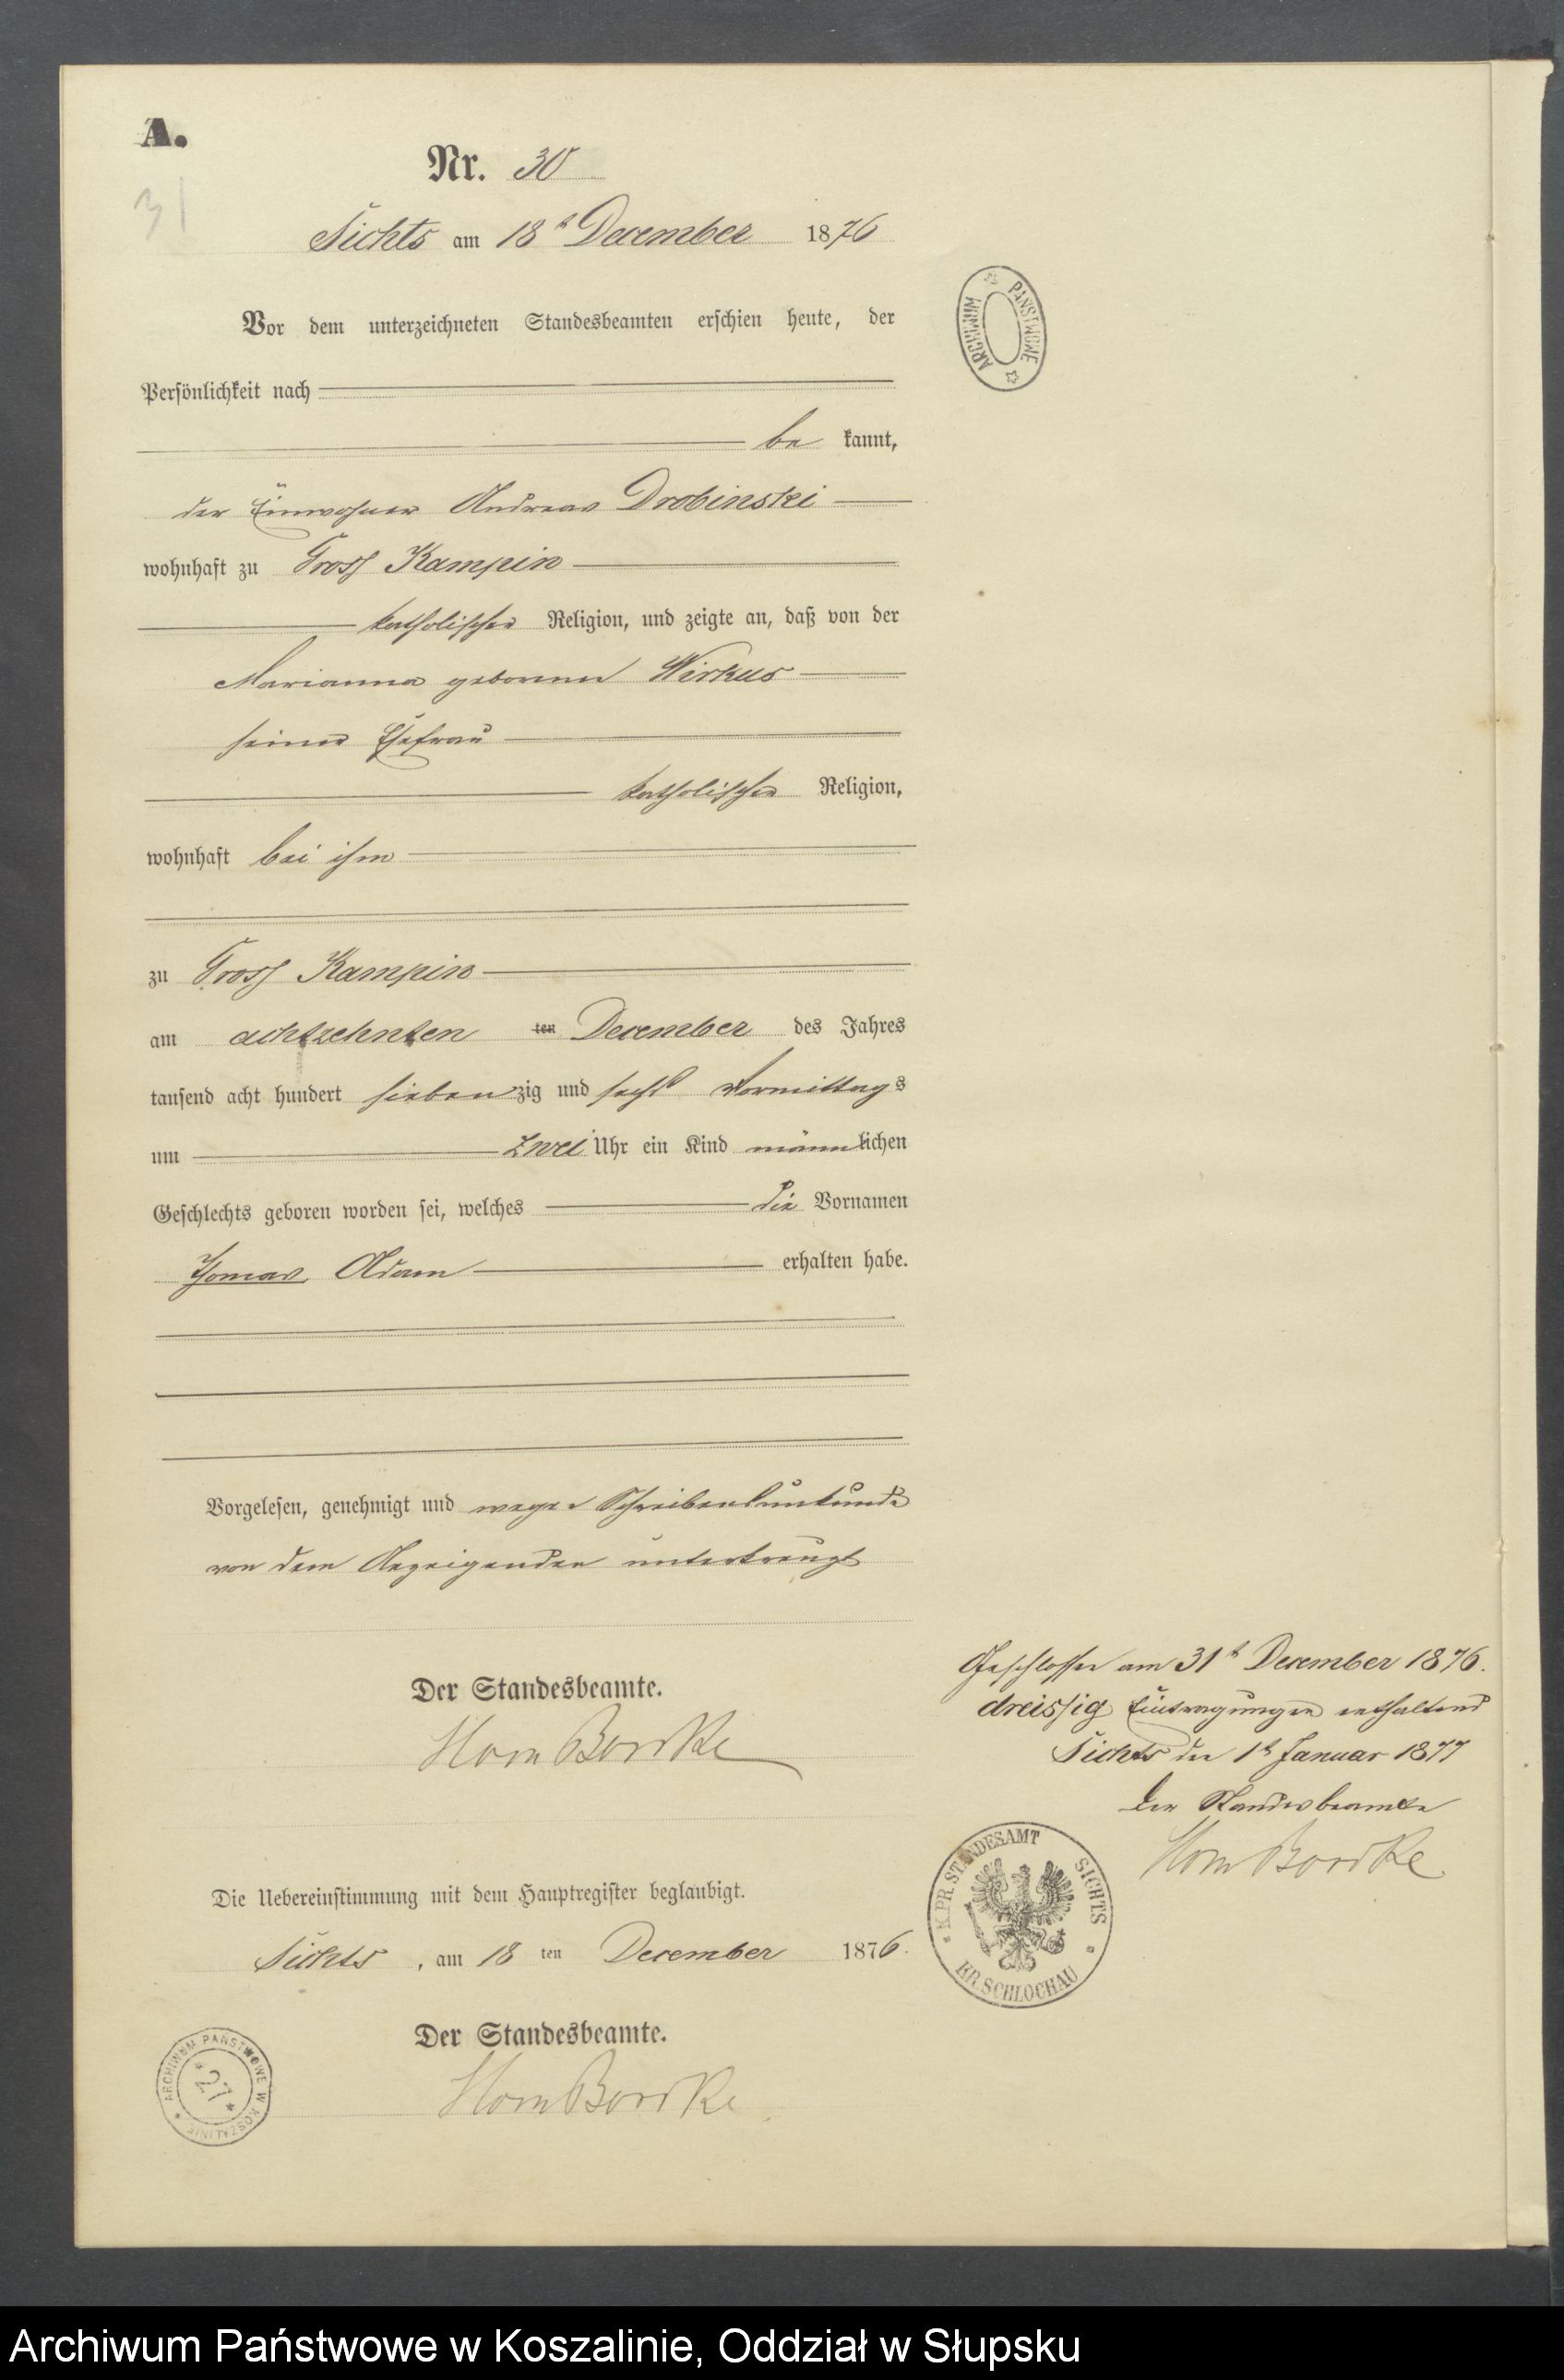 A.
31
Nr. 30
Sichts am 18t December 1876
Vor dem unterzeichneten Standesbeamten erschien heute, der
Persönlichkeit nach
be kannt,
der Einwohner Andreas Drobinski
wohnhaft zu Gross Kampin
katholischer Religion, und zeigte an, daß von der
Marianna geborenen Wirkus
seiner Ehefrau
katholischer Religion,
wohnhaft bei ihm
zu Gross Kampin
am achtzehnten ten December des Jahres
tausend acht hundert sieben zig und sechs Vormittags
um zwei Uhr ein Kind männlichen
Geschlechts geboren worden sei, welches die Vornamen
Thomas Adam erhalten habe.
Vorgelesen, genehmigt und wegen Schreibensunkunde
von dem Anzeigenden unterkreuzt
Der Standesbeamte.
Die Uebereinstimmung mit dem Hauptregister beglaubigt.
Sichts, am 18 ten December 1876.
Der Standesbeamte.
ARCHIWUM PAŃSTWOWE
Geschlossen am 31t December 1876.
dreissig Eintragungen enthaltend
Sichts den 1t Januar 1877
Der Standesbeamte
K. PR. STANDESAMT SICHTS
KR. SCHLOCHAU
ARCHIWUM PAŃSTWOWE W KOSZALINIE
27
Archiwum Państwowe w Koszalinie, Oddział w Słupsku